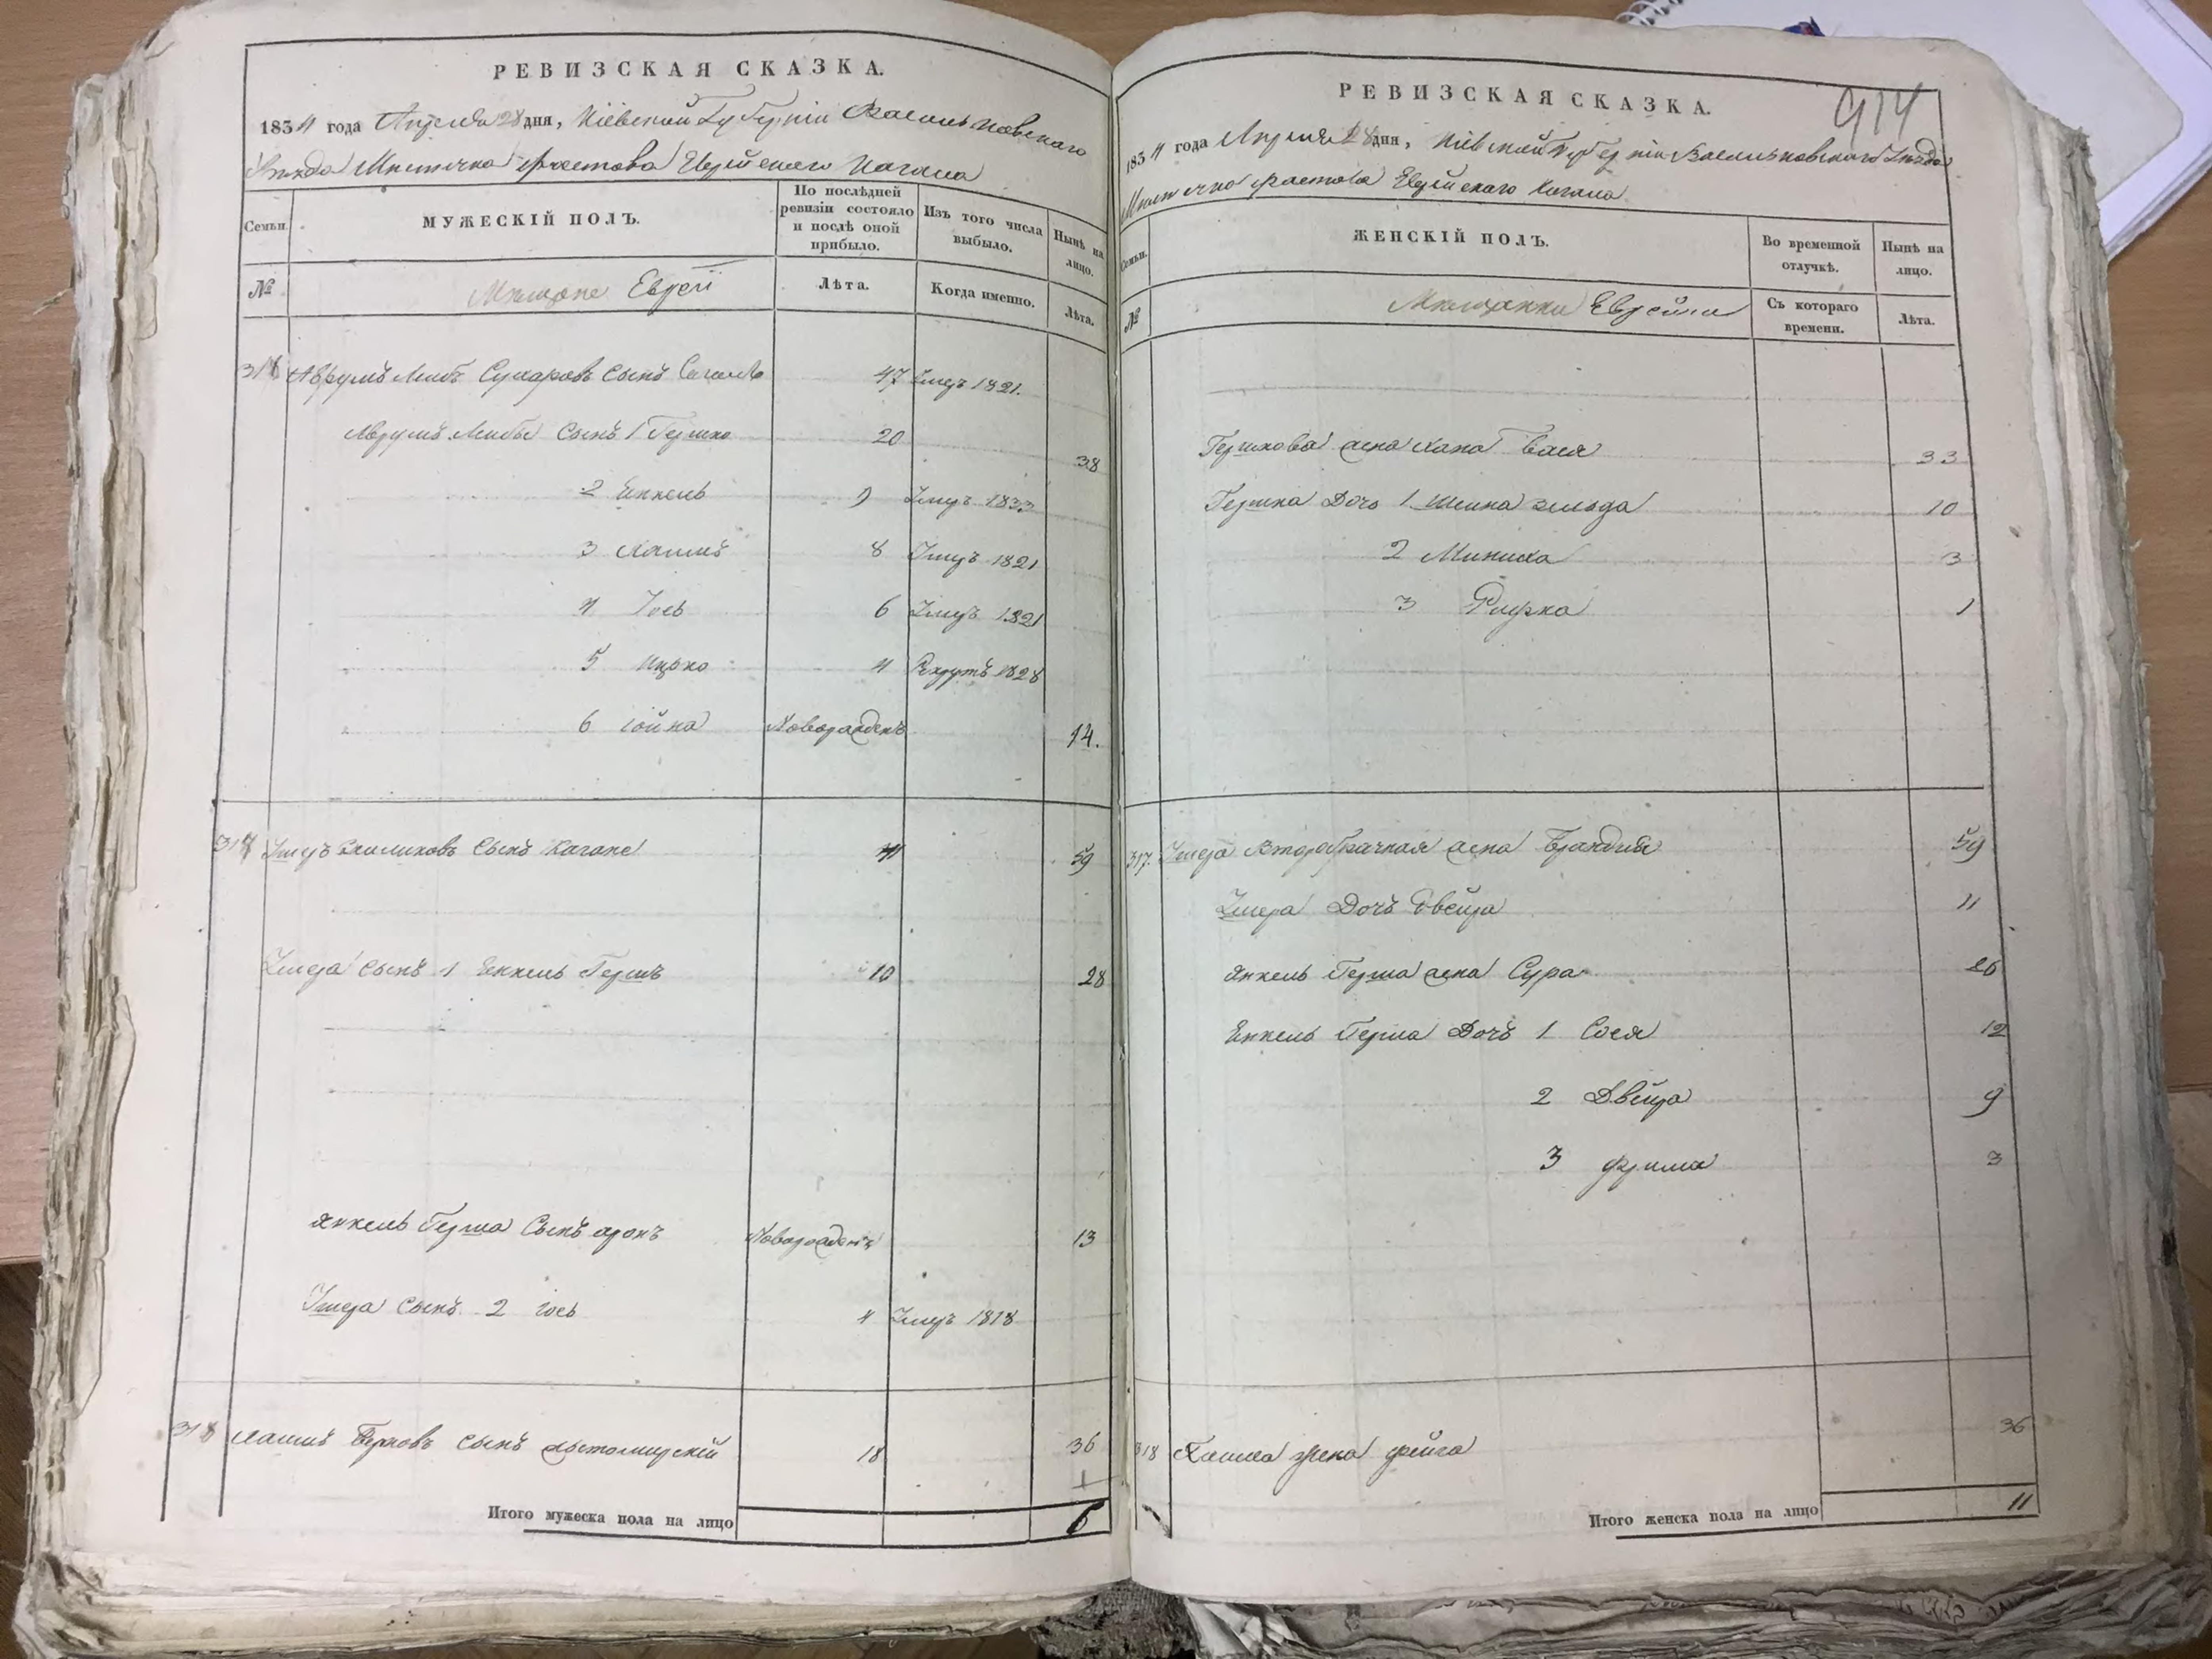 РЕВИЗСКАЯ СКАЗКА.
1834 года Апреля 28 дня, Кіевской Губерніи Васильковскаго
Уѣзда Мѣстечка Фастова Еврейскаго Кагала
Семьи.
МУЖЕСКІЙ ПОЛЪ.
По послѣдней ревизіи состояло и послѣ оной прибыло.
Изъ того числа выбыло.
Нынѣ на лицо.
№
Мѣщане Евреи
Лѣта.
Когда именно.
Лѣта.
316 Аврумъ Лейбъ Сухаровъ Сынъ 47 Умеръ 1821.
Аврумъ Лейбы Сынъ 1 Гершко 20 38
2 Енкель 9 Умеръ 1833
3 Хаимъ 8 Умеръ 1821
4 Іось 6 Умеръ 1821
5 Ицко 4 Рекрутъ 1828
6 Іойна Новорожденъ 14.
317 Умеръ Сынъ Кагане 41 59
Умера Сынъ 1 Енкель Гершъ 10 28
Янкель Герша Сынъ Аронъ Новорожденъ 13
Умера Сынъ 2 Іось 4 Умеръ 1818
318 Хаимъ Берковъ Сынъ Житомирскій 18 36
Итого мужеска пола на лицо 6
914
РЕВИЗСКАЯ СКАЗКА.
1834 года Апреля 28 дня, Кіевской Губерніи Васильковскаго Уѣзда
Мѣстечка Фастова Еврейскаго Кагала
Семьи.
ЖЕНСКІЙ ПОЛЪ.
Во временной отлучкѣ.
Нынѣ на лицо.
№
Мѣщанки Еврейки
Съ котораго времени.
Лѣта.
Гершкова жена Хана Бася 33
Гершка Дочь 1 Шейна Зельда 10
2 Миниха 3
3 Рифка 1
317. Умера Второбрачная жена Брандля 59
Умера Дочь Двейра 11
Янкель Герша жена Сура 26
Енкель Герша Дочь 1 Сося 12
2 Двейра 9
3 Фрима 3
318 Хаима жена Фейга 36
Итого женска пола на лицо 11